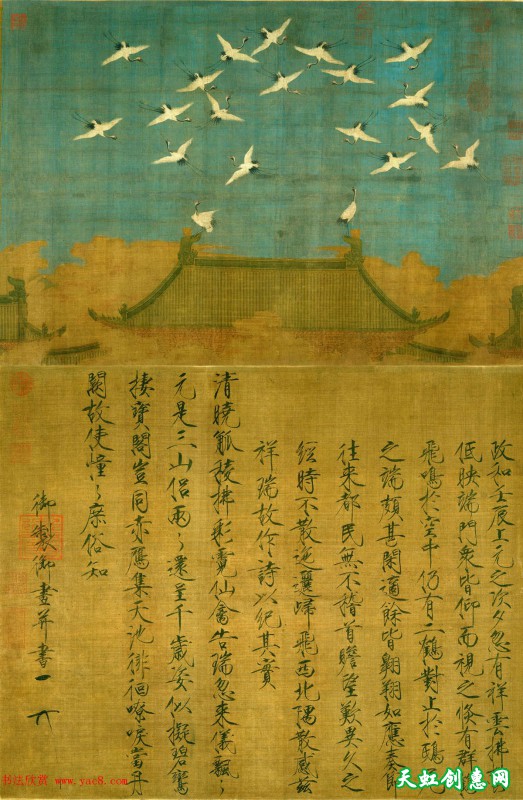 政和壬辰上元之次夕忽有祥雲拂
低映端門眾皆仰而視之倏有群
飛鳴於空中仍有二鶴對止於鴟
之端頗甚閑適餘皆翱翔如應奏節
往來都民無不稽首瞻望歎異久之
經時不散迤邐歸飛西北隅散感茲
祥瑞故作詩以紀其實
清曉觚稜拂彩霓仙禽告瑞忽來儀飄々
元是三山侶兩々還呈千歲姿似擬碧鸞
棲寶閣豈同赤鴈集天池徘徊嘹唳當丹
闕故使憧々庶俗知
御製御畫并書
书法欣赏 www.yac8.com
天虹创惠网